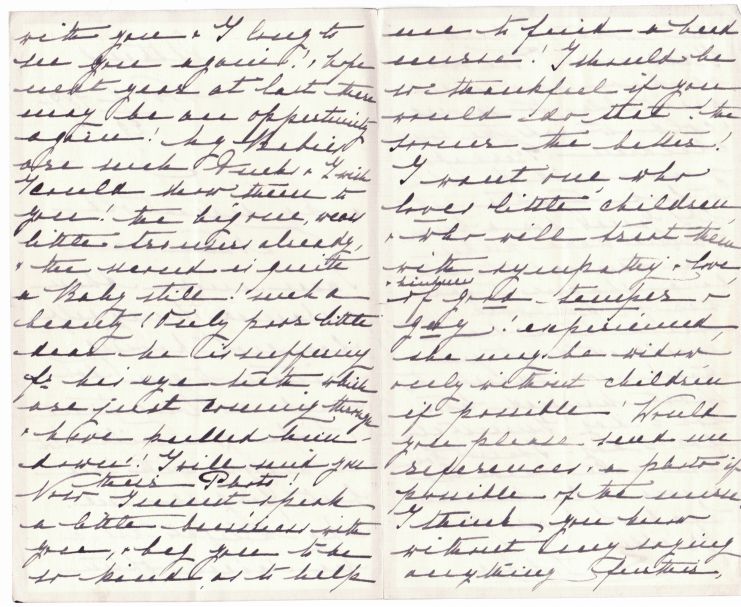 with you & I long to
see you again! I hope
next year at last there
may be an opportunity
again! My Babies
are such Ducks & I wish
I could show them to
you! the big one, wears
little trousers already,
& the second is quite
a Baby still! such a
beauty! Only poor little
dear he is suffering
fr his eye teeth which
are just coming through
& have pulled him
down! I will send you
their Photos!
Now I must speak
a little business with
you, & beg you to be
so kind, as to help
me to find a head
nurse! I should be
so thankful if you
would do that! the
sooner the better!
I want one who
loves little children
& who will treat them
with sympathy & love
of good temper &
gay! experienced,
she may be widow
only without children
if possible! Would
you please send me
references & a photo if
possible of the nurse
I think you know
without my saying
anything further,